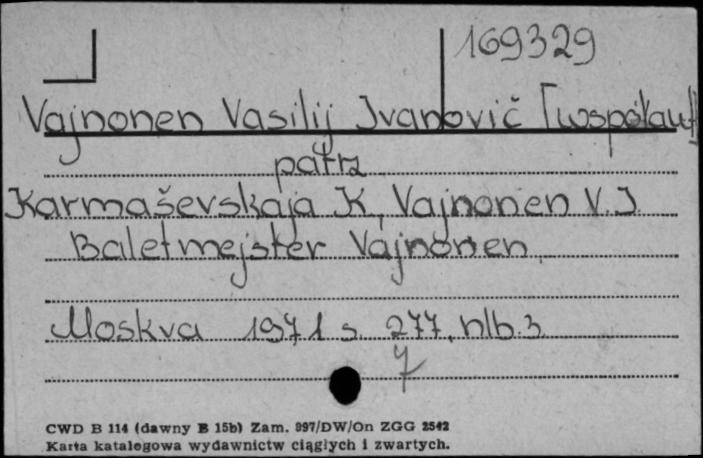 169329
Vajnonen Vasilij Ivanovič [współaut]
patrz
Karmaševskaja K., Vajnonen V.I.
Baletmejster Vajnonen.
Moskva 1971 s. 277, nlb. 3
7
CWD B 114 (dawny B 15b) Zam. 997/DW/On ZGG 2542
Karta katalogowa wydawnictw ciągłych i zwartych.